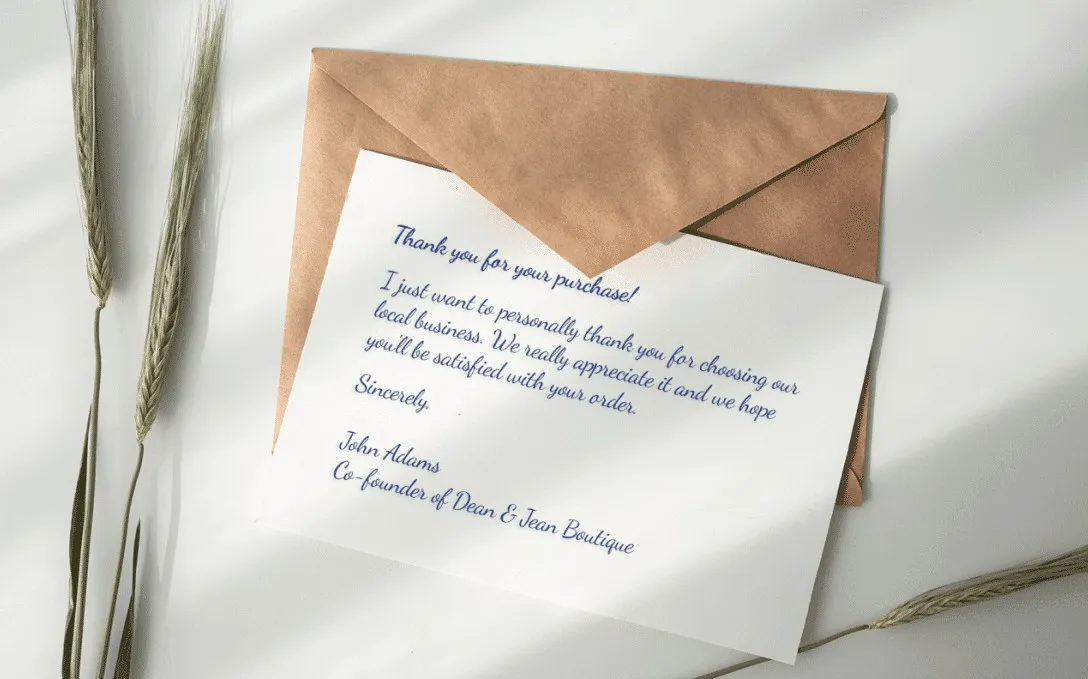 Thank you for your purchase!
I just want to personally thank you for choosing our
local business. We really appreciate it and we hope
you'll be satisfied with your order.
Sincerely,
John Adams
Co-founder of Dean & Jean Boutique